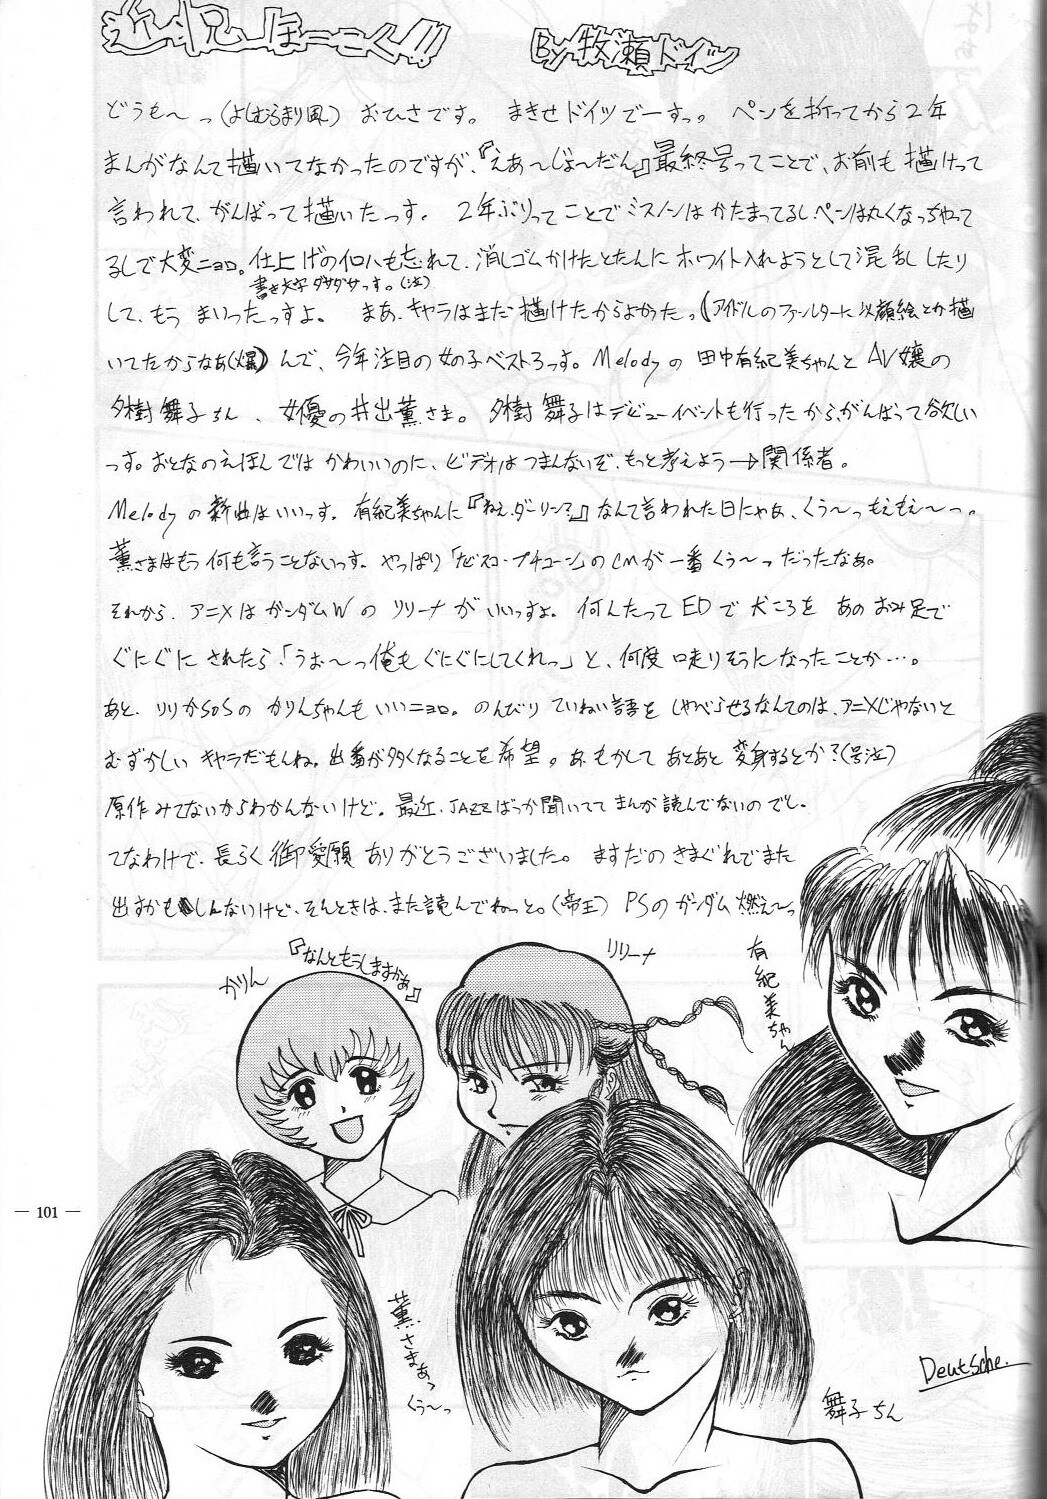 近況ほーこく!!
By 牧瀬ドイツ
どうも～っ(よしむらまり風) おひさです。 まきせドイツでーすっ。 ペンを折ってから2年
まんがなんて描いてなかったのですが、『えあ～じょ～だん』最終号ってことで、お前も描けって
言われて、がんばって描いたっす。 2年ぶりってことでミスノンはかたまってるしペンは丸くなっちゃって
るしで大変ニョロ。仕上げのイロハも忘れて、消しゴムかけたとたんにホワイト入れようとして混乱したり
書き文字ダサダサっす。(泣)
して、もう まいったっすよ。 まあ、キャラはまだ描けたからよかったっ(アイドルのファンレターに似顔絵とか描
いてたからなあ(爆)) んで、今年注目の女の子ベスト3っす。Melodyの田中有紀美ちゃんとAV嬢の
夕樹舞子ちん、女優の井出薫さま。夕樹舞子はデビューイベントも行ったから、がんばって欲しい
っす。おとなのえほんではかわいいのに、ビデオはつまんないぞ、もっと考えよう→関係者。
Melodyの新曲はいいっす。有紀美ちゃんに『ねえ、ダーリン?』なんて言われた日にゃあ、くう～っもえもえ～っ。
薫さまはもう何も言うことないっす。やっぱり「ナビスコ・プチューン」のCMが一番くう～っだったなあ。
それから、アニメはガンダムWのリリーナがいいっすよ。何たってEDで犬ころをあのおみ足で
ぐにぐにされたら「うぉ～っ俺もぐにぐにしてくれっ」と、何度口走りそうになったことか…。
あと、リリカSOSのかりんちゃんもいいニョロ。のんびりていねい語をしゃべらせるなんてのは、アニメじゃないと
むずかしいキャラだもんね。出番が多くなることを希望。あ、もかしてあとあと変身するとか?(号泣)
原作みてないからわかんないけど。最近、JAZZばっか聞いててまんが読んでないのでし。
てなわけで、長らく御愛願ありがとうございました。 ますだのきまぐれでまた
出すかもしんないけど、そんときは、また読んでねっと。(帝王) PSのガンダム燃え～っ
かりん
『なんともうしますかぁ』
リリーナ
有紀美ちゃん
薫さまぁっ
くぅ～っ
舞子ちん
Deutsche.
― 101 ―